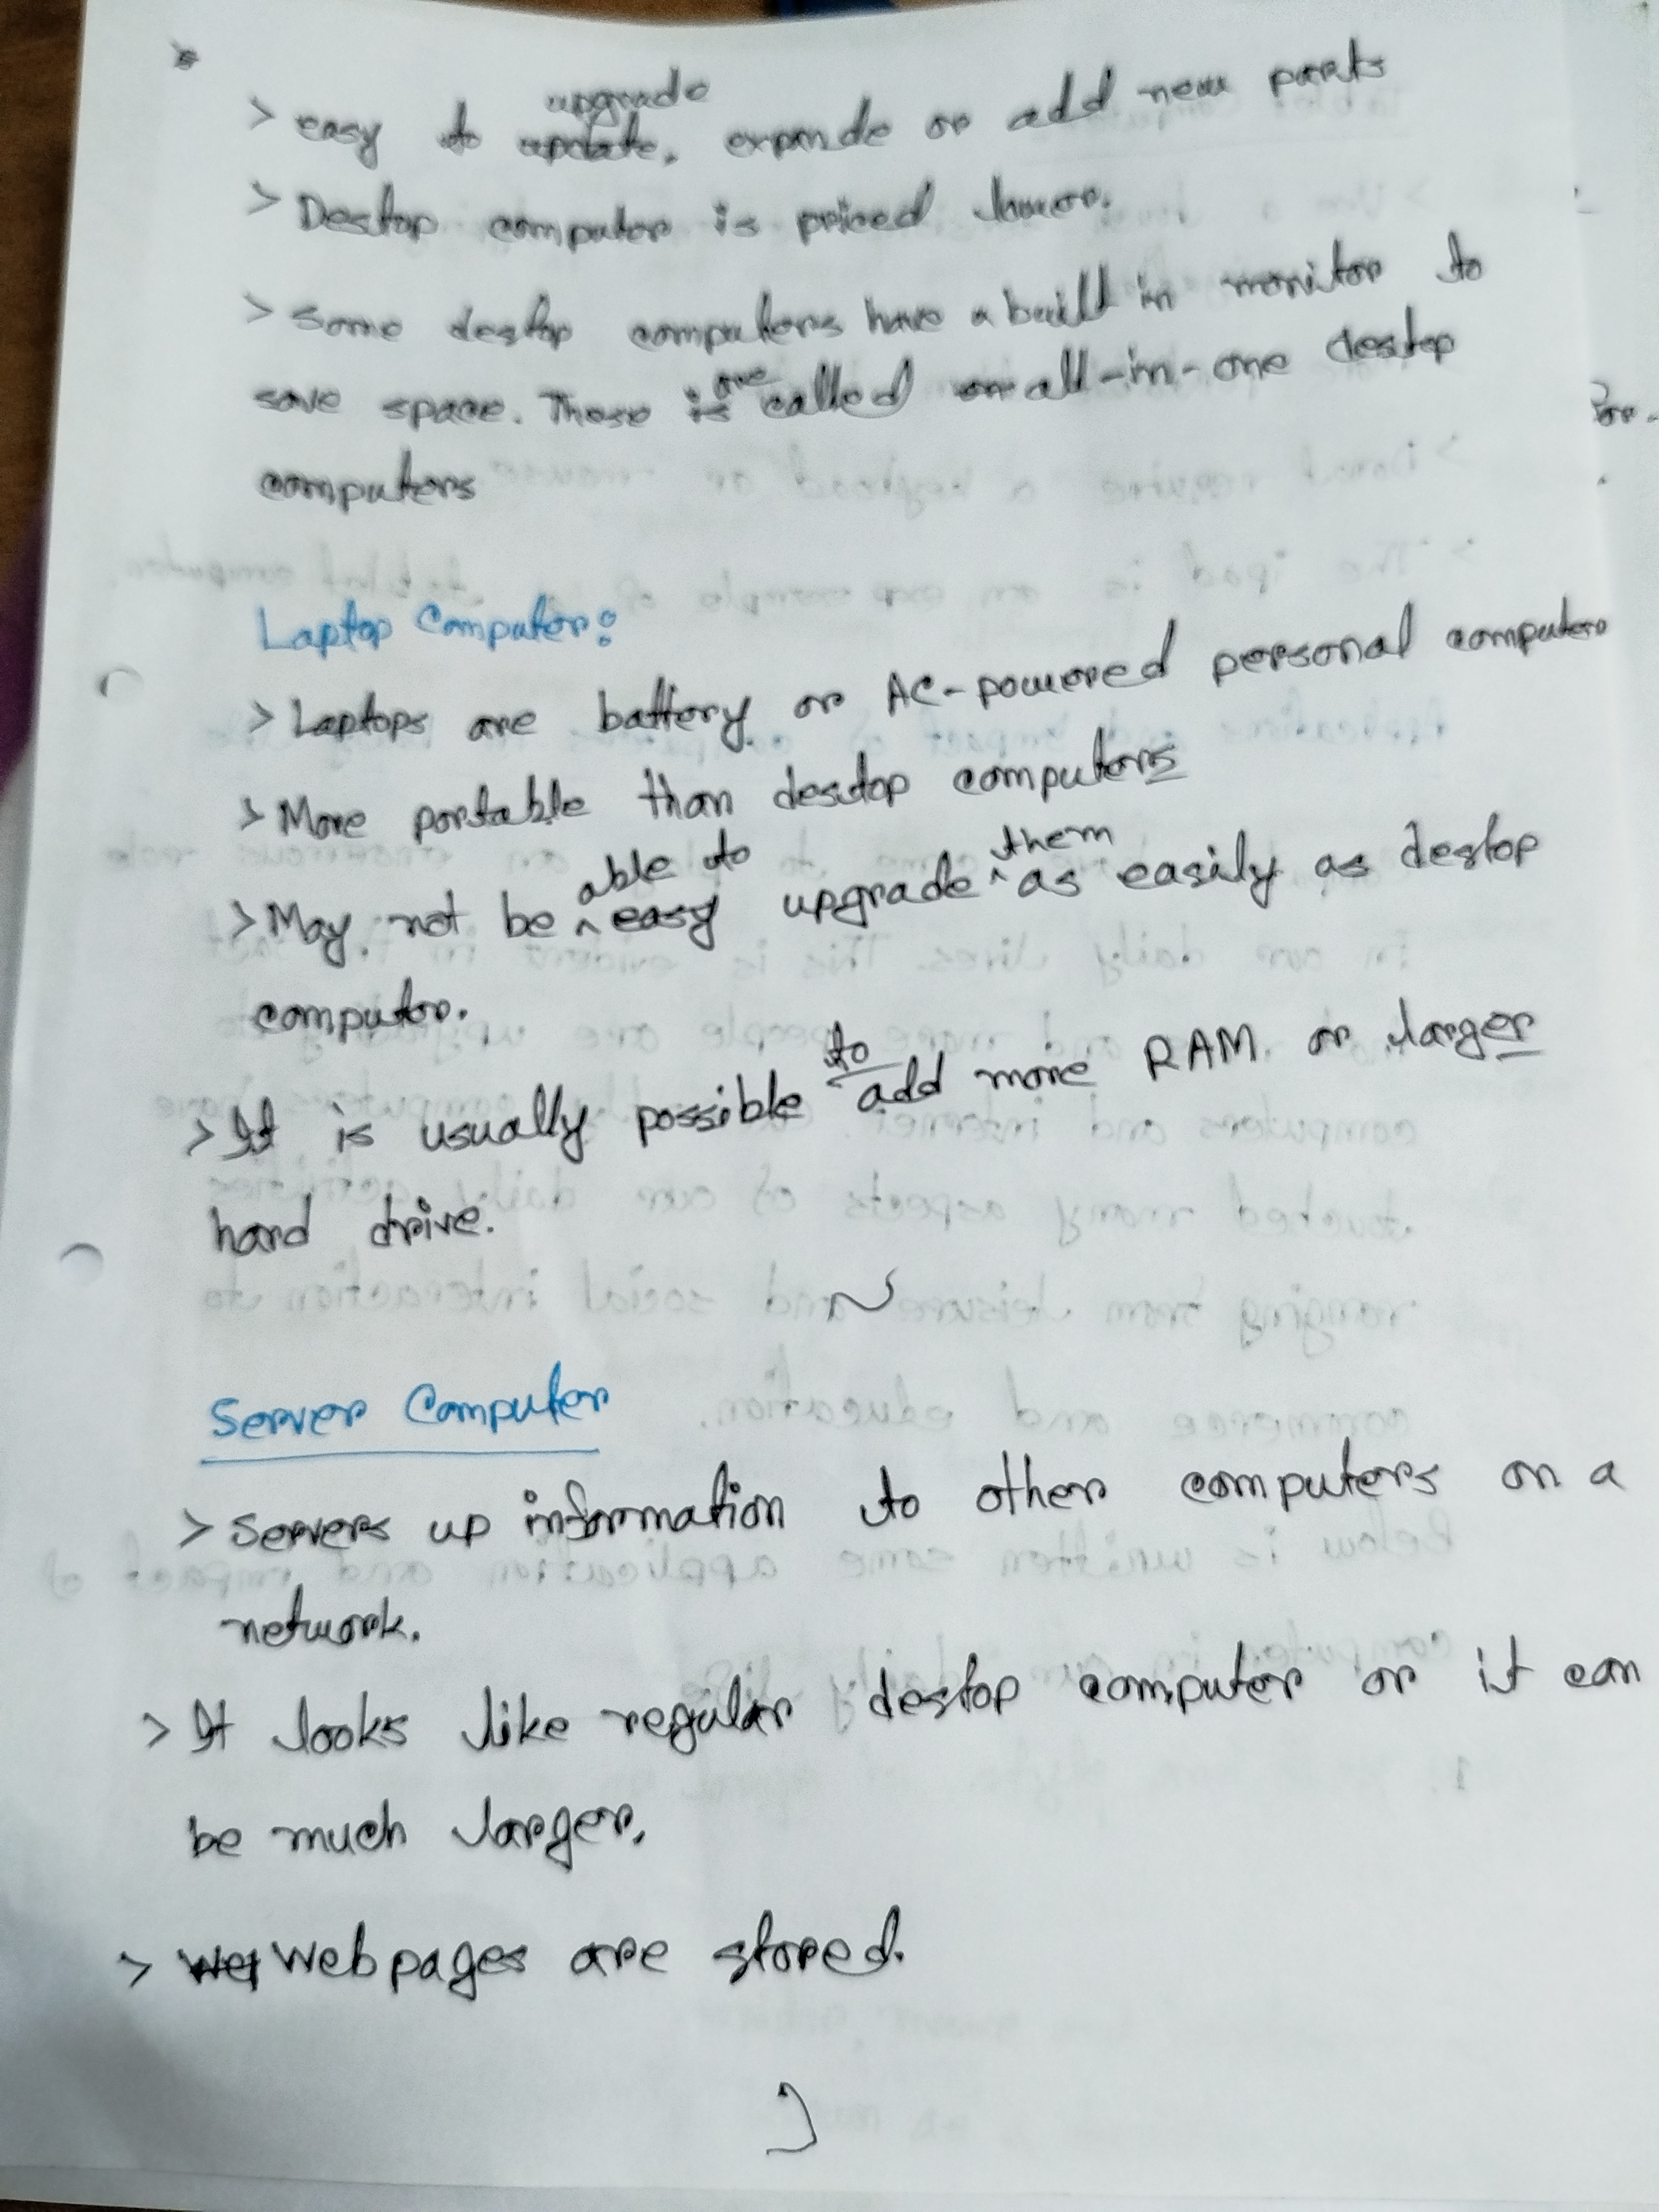 > easy to update, upgrade expande or add new parts
> Desktop computer is priced lower.
> Some destop computers have a built in monitor to
save space. These is are called an all-in-one destop
computers
Laptop Computer:
> Laptops are battery or AC-powered personal computer
> More portable than desktop computers
> May not be able to easy upgrade them as easily as destop
computer.
> It is usually possible to add more RAM or larger
hard drive.
Server Computer
> Servers up information to other computers on a
network.
> It looks like regular destop computer or it can
be much larger.
> Web pages are stored.